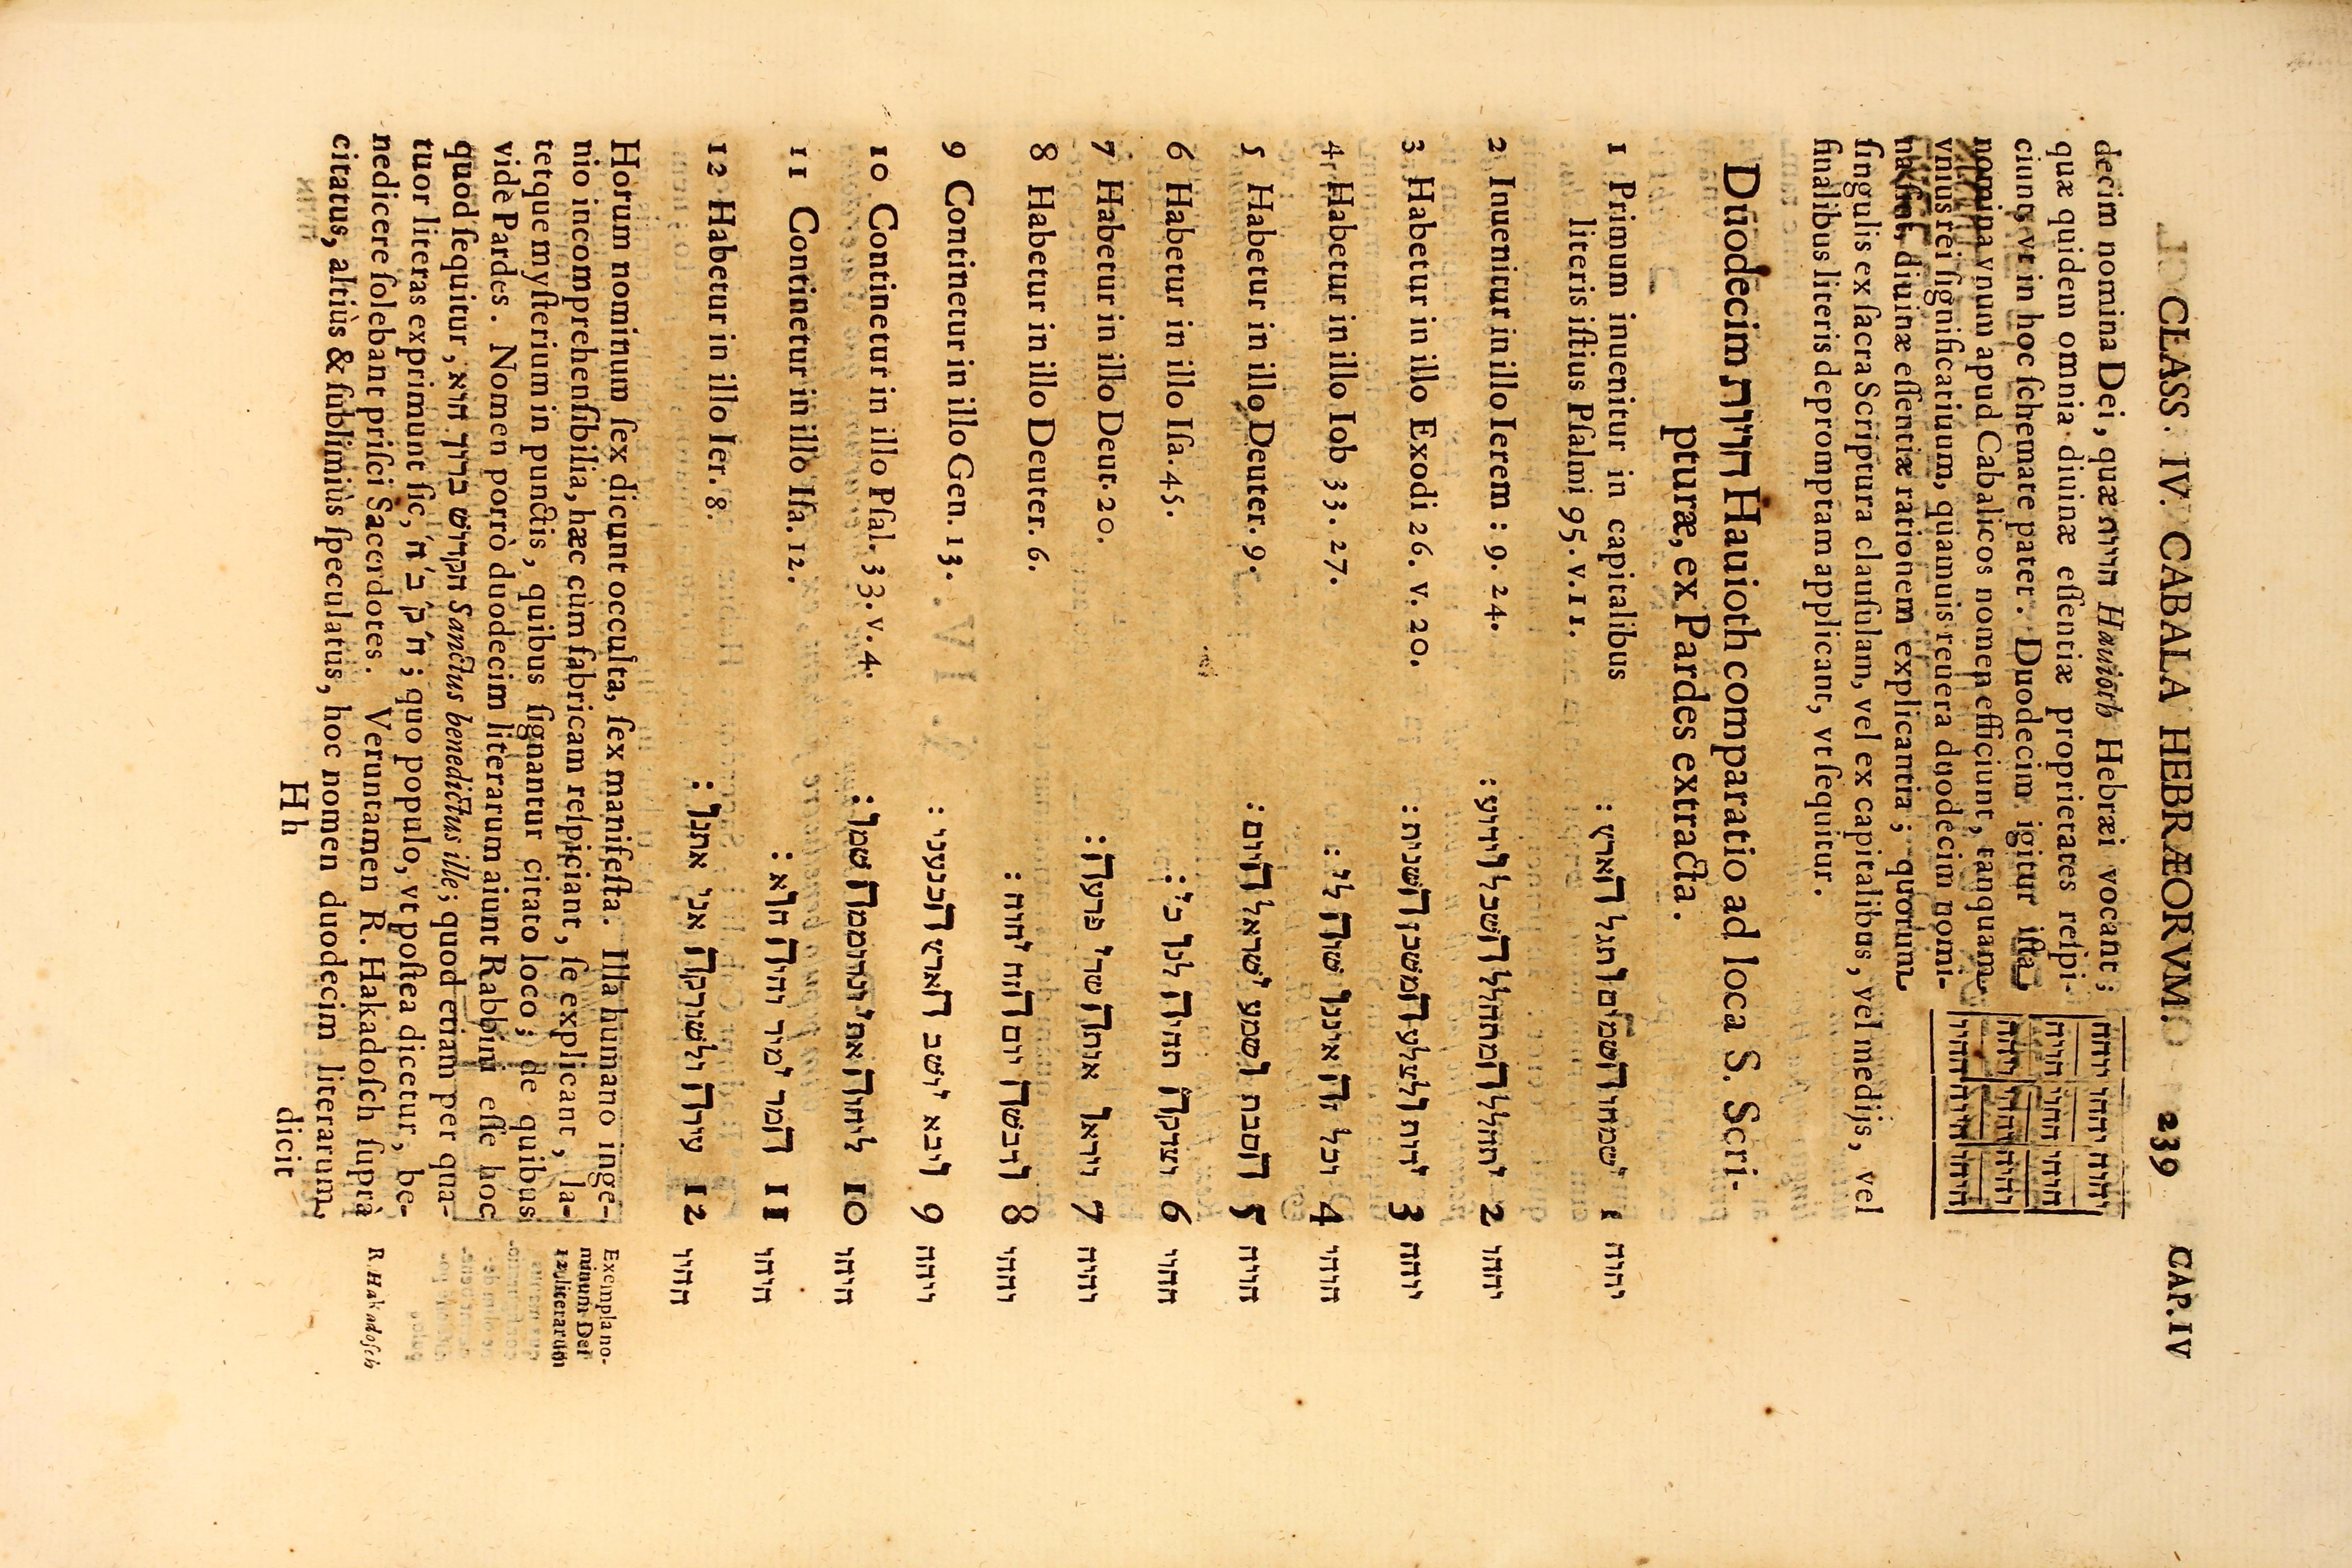 CLASS. IV. CABALA HEBRÆORVM. 239 CAP. IV
decim nomina Dei, quæ הויות Hauioth Hebræi vocant;
quæ quidem omnia diuinæ eſſentiæ proprietates reſpi-
ciunt, vt in hoc ſchemate patet. Duodecim igitur iſta
nomina vnum apud Cabalicos nomen efficiunt, tanquam
vnius rei ſignificatiuum, quamuis reuera duodecim nomi-
na ſint, diuinæ eſſentiæ rationem explicantia; quorum
ſingulis ex ſacra Scriptura clauſulam, vel ex capitalibus, vel medijs, vel
finalibus literis depromptam applicant, vt ſequitur.
Duodecim הויות Hauioth comparatio ad loca S. Scri-
pturæ, ex Pardes extracta.
1 Primum inuenitur in capitalibus
literis iſtius Pſalmi 95. v. 11.
ישמחו השמים ותגל הארץ : 1 יהוה
2 Inuenitur in illo Ierem: 9. 24. יתהלל המתהלל השכל וידוע : 2 יההו
3 Habetur in illo Exodi 26. v. 20. ירות ולצלע המשכן השנית : 3 יוהה
4 Habetur in illo Iob 33. 27. וכל זה איננו שוה לי : 4 הוהי
5 Habetur in illo Deuter. 9. הסכת ושמע ישראל היום : 5 הויה
6 Habetur in illo Iſa. 45. וצדקה תהיה לנו כי : 6 ההוי
7 Habetur in illo Deut. 20. ויראו אותה שרי פרעה : 7 והיה
8 Habetur in illo Deuter. 6. ודבשה יום הזה יהוה : 8 וההי
9 Continetur in illo Gen. 13. ויבא יושב הארץ הכנעני : 9 ויהה
10 Continetur in illo Pſal. 33. v. 4. ליהוה אתי ונרוממה שמו : 10 היהו
11 Continetur in illo Iſa. 12. המר ימיר והיה הוא : 11 היוה
12 Habetur in illo Ier. 8. עירה ולשורקה אני אתנו : 12 ההיו
Horum nominum ſex dicunt occulta, ſex manifeſta. Illa humano inge-
nio incomprehenſibilia, hæc cùm fabricam reſpiciant, ſe explicant, la-
tetque myſterium in punctis, quibus ſignantur citato loco; de quibus
vide Pardes. Nomen porrò duodecim literarum aiunt Rabbini eſſe hoc
quod ſequitur, הקדוש ברוך הוא Sanctus benedictus ille; quod etiam per qua-
tuor literas exprimunt ſic, ה׳ ק׳ ב׳ ה׳; quo populo, vt poſtea dicetur, be-
nedicere ſolebant priſci Sacerdotes. Veruntamen R. Hakadoſch ſuprà
citatus, altiùs & ſublimiùs ſpeculatus, hoc nomen duodecim literarum
Exempla no-
minum Dei
12 literarum
R. Hakadoſch
H h
dicit